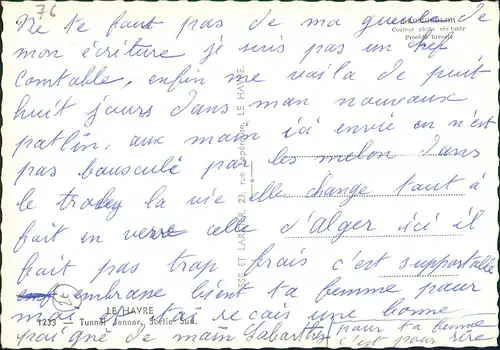 76
Ne te faut pas de ma gueule de
mon écriture je suis pas un chef
comtable, enfin me voila depuit
huit jours dans mon nouveaux
patlin, aux main ici envie on n'est
pas bousculé par les melon dans
le troley la vie elle change tout à
fait en verse celle d'Alger ici il
fait pas trop frais c'est supportable
embrasse bient ta femme pour
moi et toi recois une bonne
poigné de main Labartus
pour ta femme
c'est pour rire
COLOR
Couleur photo véritable
Procédé breveté
LE HAVRE
1233 Tunnel Jenner, Sortie Sud.
23, rue LE HAVRE.